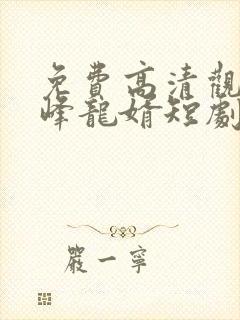 免費高清觀
峰龍婿短劇
嚴一寧